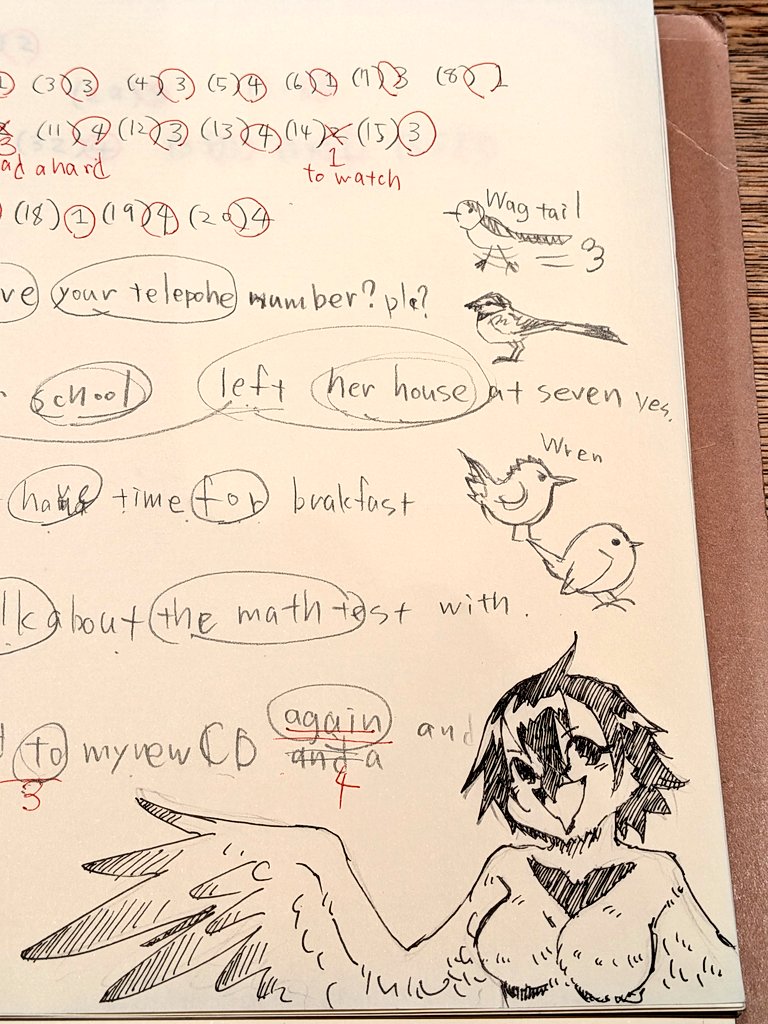 (3) 3 (4) 3 (5) 4 (6) 1 (7) 3 (8) 1
3 (11) 4 (12) 3 (13) 4 (14) 1 (15) 3
ad a hard to watch
(18) 1 (19) 4 (20) 4
Wagtail
ve your telepohe number? pla?
school left her house at seven yes.
Wren
have time for brakfast
lk about the math test with.
to my new CD again and
and a
3 4